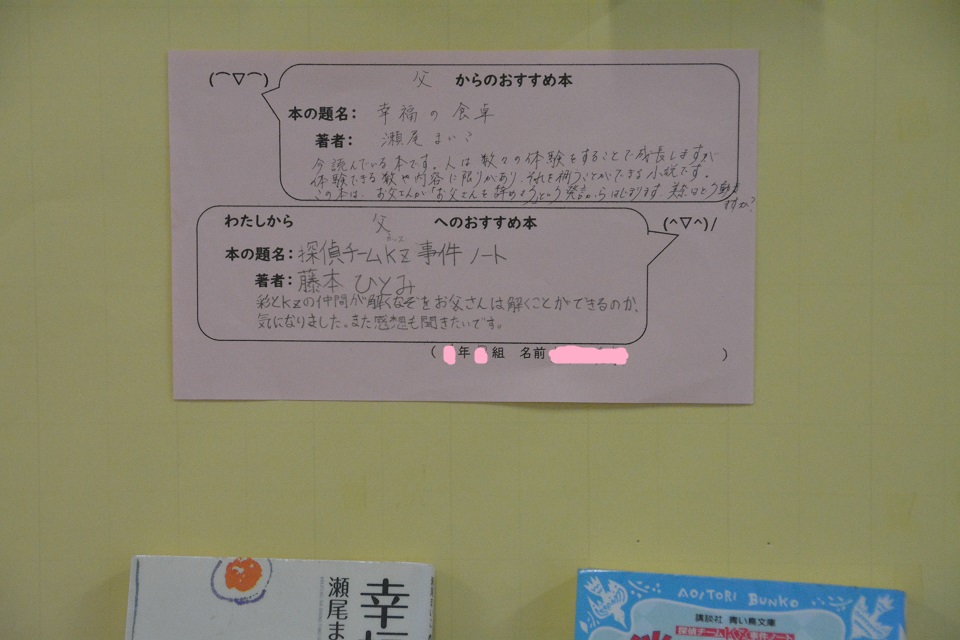 (⌒▽⌒)
父 からのおすすめ本
本の題名： 幸福の食卓
著者： 瀬尾まいこ
今読んでいる本です。人は数々の体験をすることで成長しますが
体験できる数や内容に限りがあり、それを補うことができる小説です。
この本は、お父さんが「お父さんを辞めよう」という発言からはじまります。家族はどう動き
ますか?
わたしから 父 へのおすすめ本
(^▽^)/
本の題名：探偵チームKZ事件ノート
著者：藤本ひとみ
彩とKZの仲間が解くなぞをお父さんは解くことができるのか、
気になりました。また感想も聞きたいです。
( 年 組 名前 )
幸
瀬尾ま
AOITORI BUNKO
講談社 青い鳥文庫
探偵チームKZ事件ノート